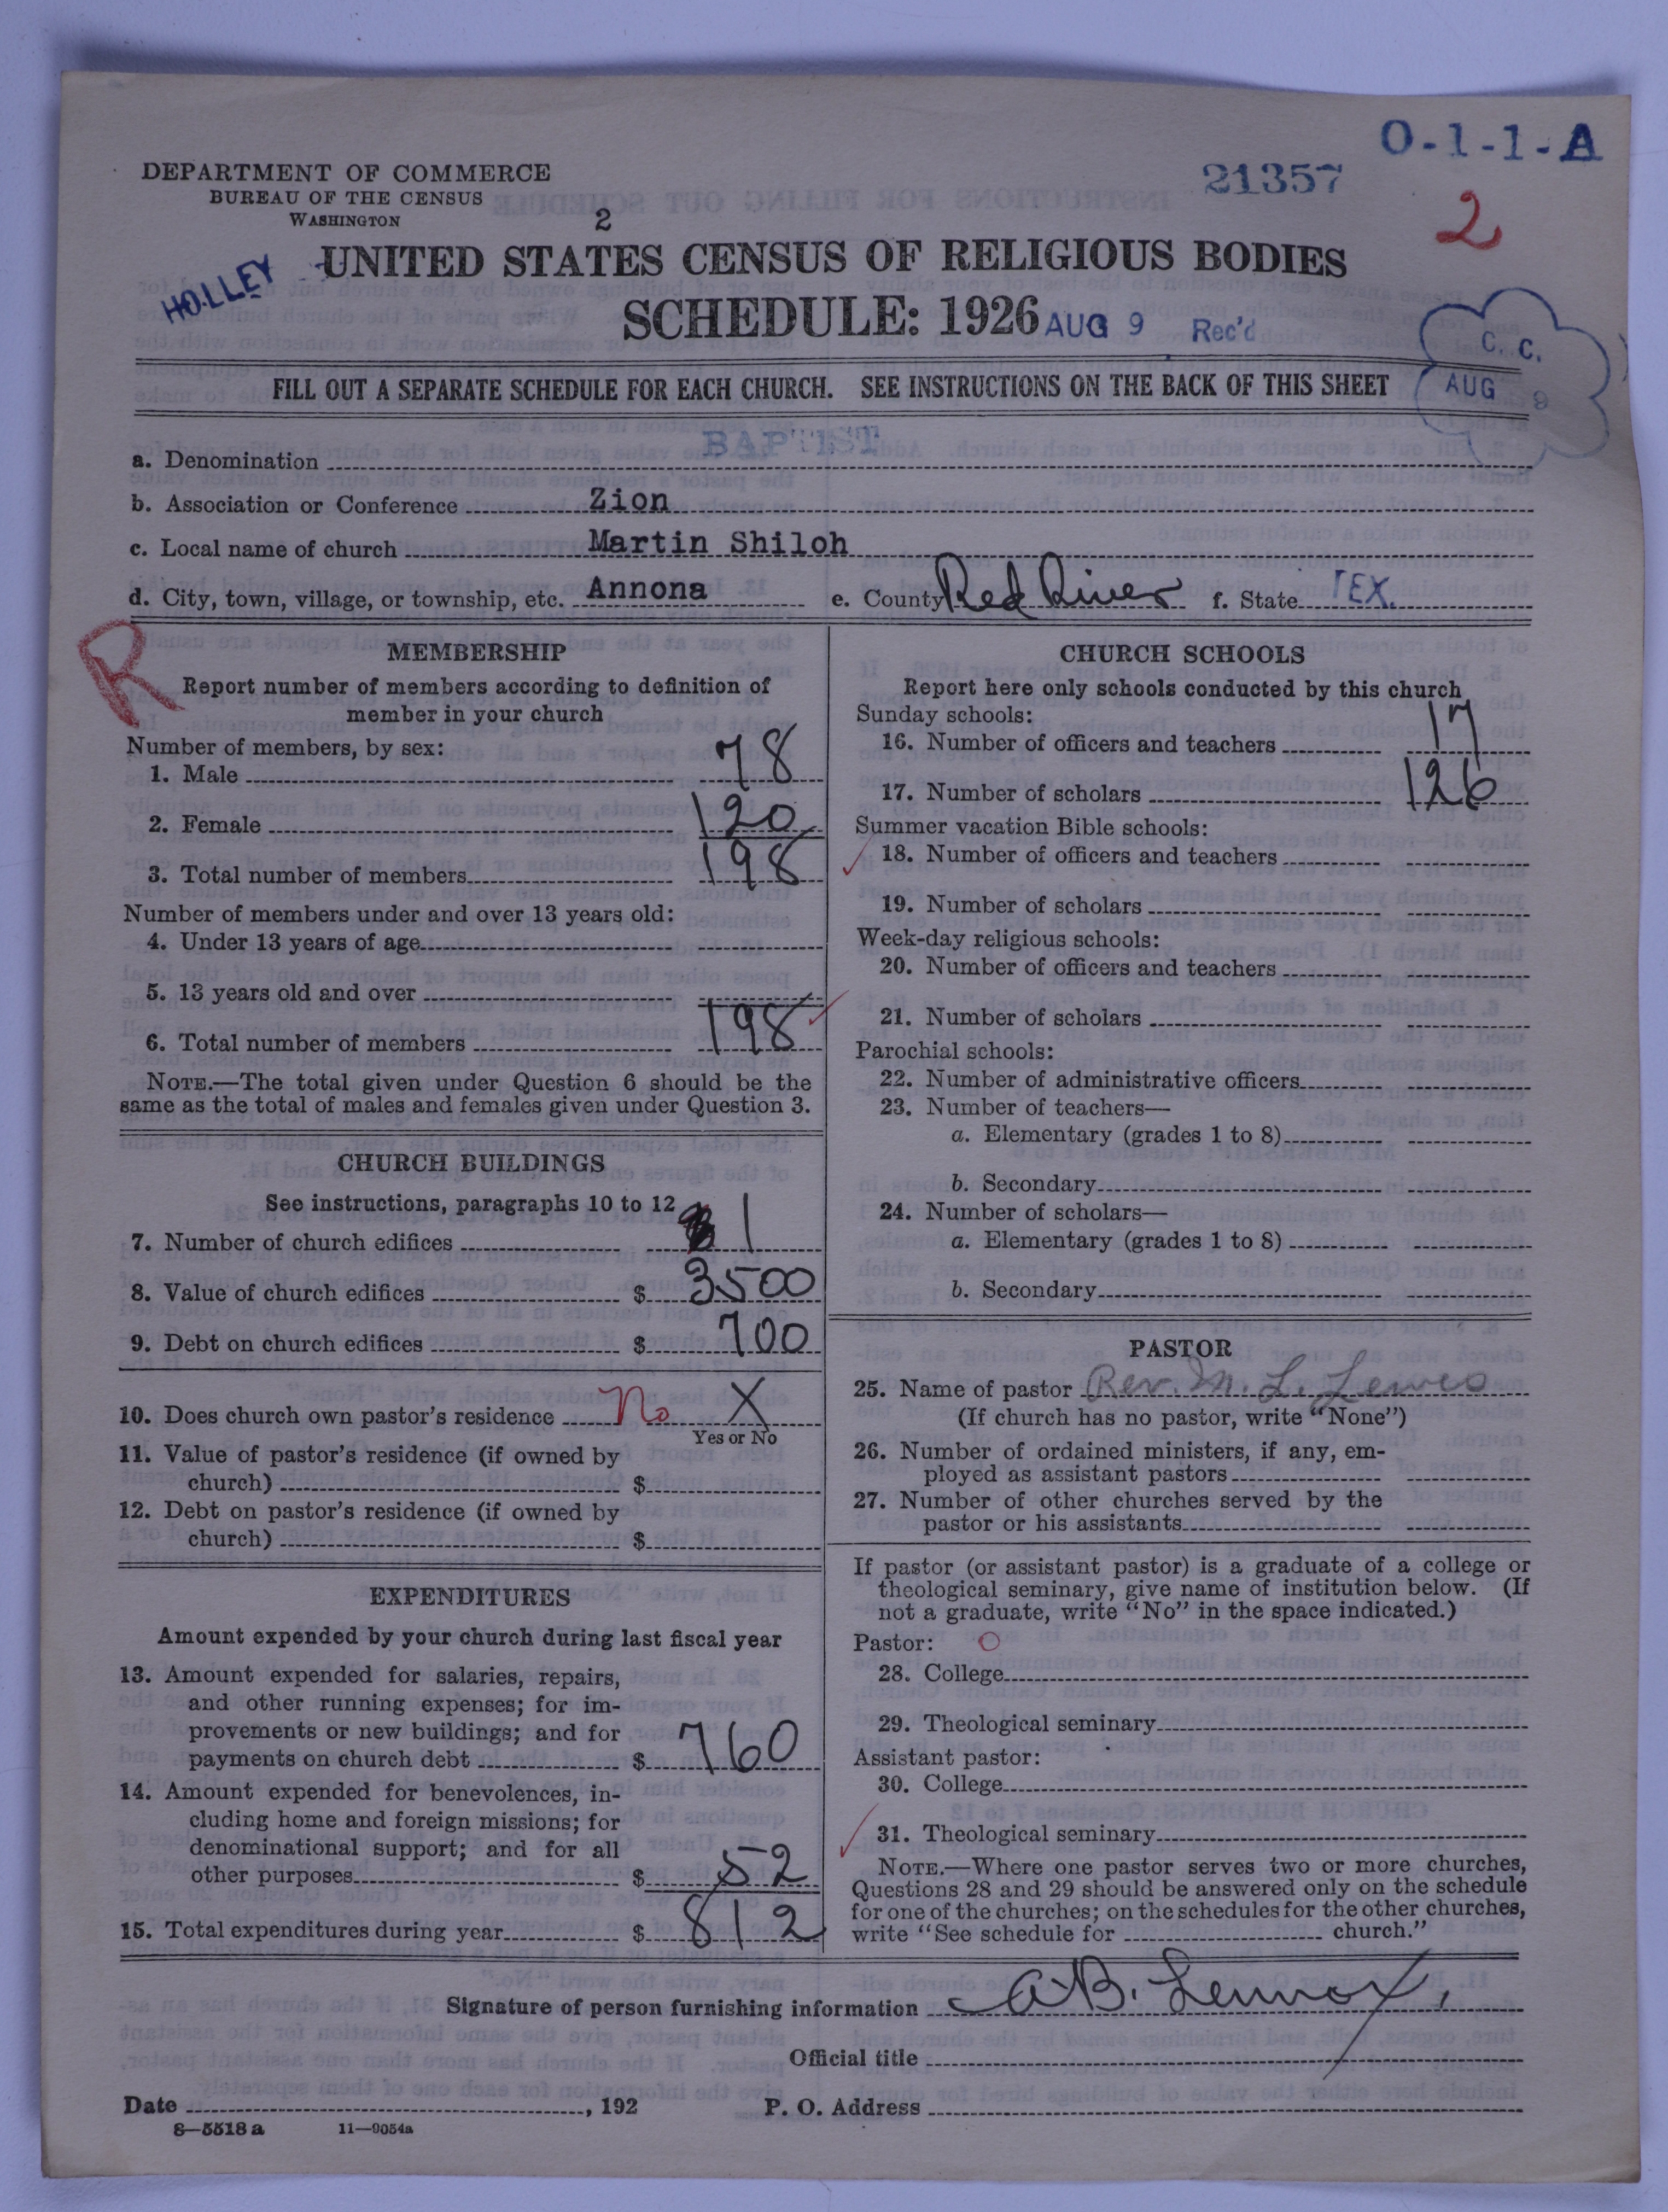 O-1-1-A
21357
2
DEPARTMENT OF COMMERCE
BUREAU OF THE CENSUS
WASHINGTON
2
HOLLEY
UNITED STATES CENSUS OF RELIGIOUS BODIES
SCHEDULE: 1926
AUG 9 Rec'd
C. C.
AUG 9
FILL OUT A SEPARATE SCHEDULE FOR EACH CHURCH. SEE INSTRUCTIONS ON THE BACK OF THIS SHEET
a. Denomination BAPTIST
b. Association or Conference Zion
c. Local name of church Martin Shiloh
d. City, town, village, or township, etc. Annona e. County Red River f. State TEX.
R
MEMBERSHIP
Report number of members according to definition of
member in your church
Number of members, by sex:
1. Male 78
2. Female 120
3. Total number of members 198
Number of members under and over 13 years old:
4. Under 13 years of age
5. 13 years old and over
6. Total number of members 198
NOTE.—The total given under Question 6 should be the
same as the total of males and females given under Question 3.
CHURCH BUILDINGS
See instructions, paragraphs 10 to 12
7. Number of church edifices 1
8. Value of church edifices $ 3500
9. Debt on church edifices $ 700
10. Does church own pastor's residence No X
Yes or No
11. Value of pastor's residence (if owned by
church) $
12. Debt on pastor's residence (if owned by
church) $
EXPENDITURES
Amount expended by your church during last fiscal year
13. Amount expended for salaries, repairs,
and other running expenses; for im-
provements or new buildings; and for
payments on church debt $ 760
14. Amount expended for benevolences, in-
cluding home and foreign missions; for
denominational support; and for all
other purposes $ 52
15. Total expenditures during year $ 812
CHURCH SCHOOLS
Report here only schools conducted by this church
Sunday schools:
16. Number of officers and teachers 17
17. Number of scholars 126
Summer vacation Bible schools:
18. Number of officers and teachers
19. Number of scholars
Week-day religious schools:
20. Number of officers and teachers
21. Number of scholars
Parochial schools:
22. Number of administrative officers
23. Number of teachers—
a. Elementary (grades 1 to 8)
b. Secondary
24. Number of scholars—
a. Elementary (grades 1 to 8)
b. Secondary
PASTOR
25. Name of pastor Rev. M. L. Lewis
(If church has no pastor, write "None")
26. Number of ordained ministers, if any, em-
ployed as assistant pastors
27. Number of other churches served by the
pastor or his assistants
If pastor (or assistant pastor) is a graduate of a college or
theological seminary, give name of institution below. (If
not a graduate, write "No" in the space indicated.)
Pastor: O
28. College
29. Theological seminary
Assistant pastor:
30. College
31. Theological seminary
NOTE.—Where one pastor serves two or more churches,
Questions 28 and 29 should be answered only on the schedule
for one of the churches; on the schedules for the other churches,
write "See schedule for church."
Signature of person furnishing information A. B. Lennox,
Official title
Date , 192 P. O. Address
8—5518 a 11—9054a